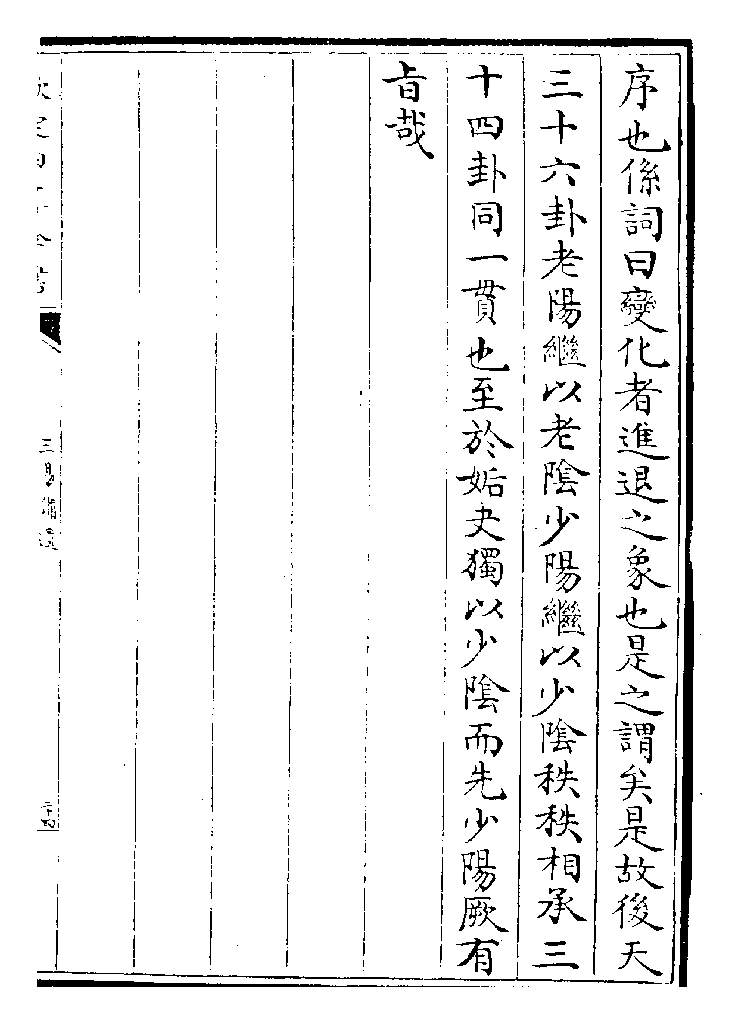 序也係詞曰變化者進退之象也是之謂矣是故後天
三十六卦老陽繼以老陰少陽繼以少陰秩秩相承三
十四卦同一貫也至於姤夬獨以少陰而先少陽厥有
㫖哉